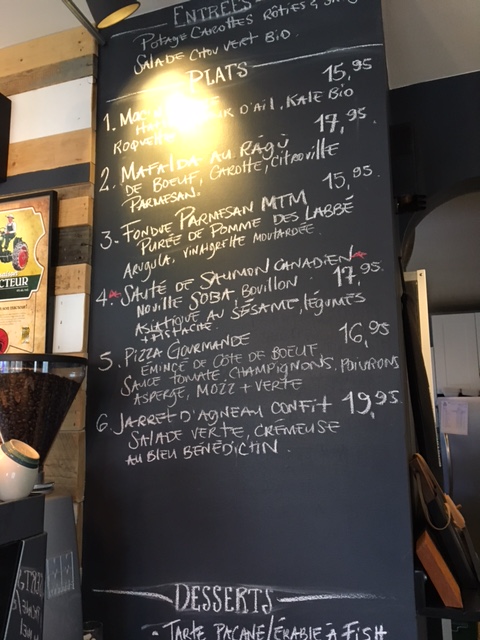 ENTRÉES
POTAGE CAROTTES RÔTIES &
SALADE CHOU VERT BIO
PLATS
1. 15,95
D'AIL, KALE BIO
ROQUETTE
2. MAFALDA AU RAGÙ 17,95
DE BOEUF, CAROTTE, CITROUILLE
PARMESAN.
3. FONDUE PARMESAN MTM 15,95
PURÉE DE POMME DES LABBÉ
ARUGULA, VINAIGRETTE MOUTARDÉE
4. SAUTÉ DE SAUMON CANADIEN 17,95
NOUILLE SOBA, BOUILLON
ASIATIQUE AU SÉSAME, LÉGUMES
+ PISTACHE
5. PIZZA GOURMANDE 16,95
ÉMINCÉ DE CÔTE DE BOEUF,
SAUCE TOMATE, CHAMPIGNONS, POIVRONS
ASPERGE, MOZZ + VERTE
6. JARRET D'AGNEAU CONFIT 19,95
SALADE VERTE, CRÉMEUSE
AU BLEU BÉNÉDICTIN.
DESSERTS
• TARTE PACANE/ÉRABLE À FISH
CTEUR